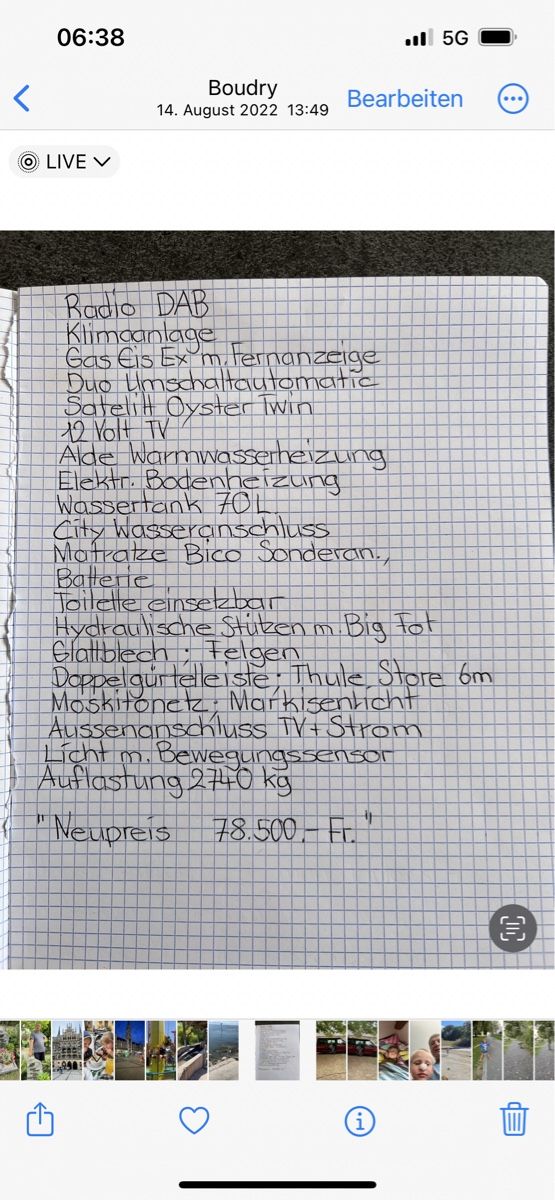 06:38
5G
Boudry
14. August 2022 13:49
Bearbeiten
LIVE
Radio DAB
Klimaanlage
Gas Eis Ex m. Fernanzeige
Duo Umschaltautomatic
Satelitt Oyster Twin
12 Volt TV
Alde Warmwasserheizung
Elektr. Bodenheizung
Wassertank 70L.
City Wasseranschluss
Matratze Bico Sonderan.,
Batterie
Toilette einsetzbar
Hydraulische Stützen m. Big Fot
Glattblech ; Felgen
Doppelgürtelleiste; Thule Store 6m
Moskitonetz; Markisenlicht
Aussenanschluss TV + Strom
Licht m. Bewegungssensor
Auflastung 2740 kg
"Neupreis 78.500.- Fr."